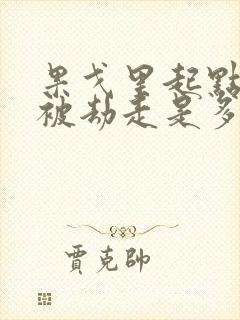 果戈里起點
被劫走是多
賈克帥